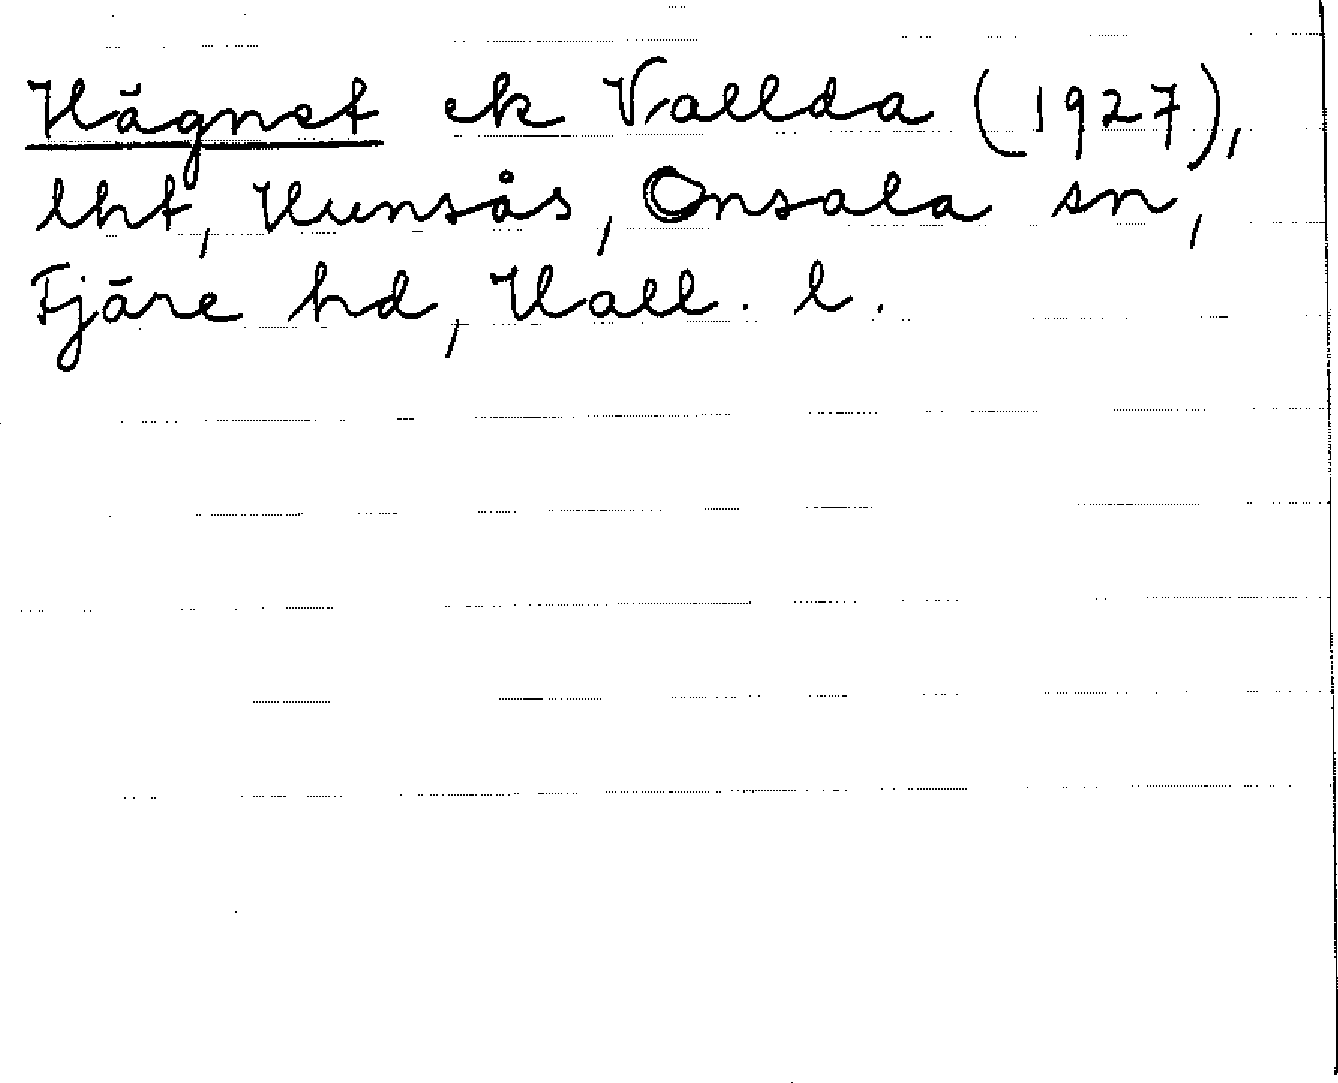 Hägnet ek Vallda (1927),
lht, Hunsås, Onsala sn,
Fjäre hd, Hall. l.